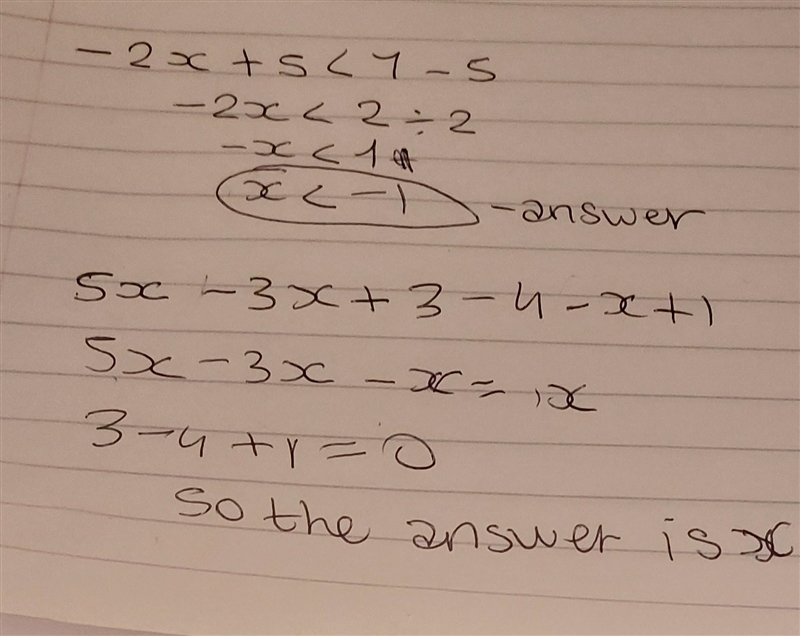 -2x + 5 < 7 - 5
-2x < 2 ÷ 2
-x < 1
x < -1 - answer
5x - 3x + 3 - 4 - x + 1
5x - 3x - x = x
3 - 4 + 1 = 0
So the answer is x